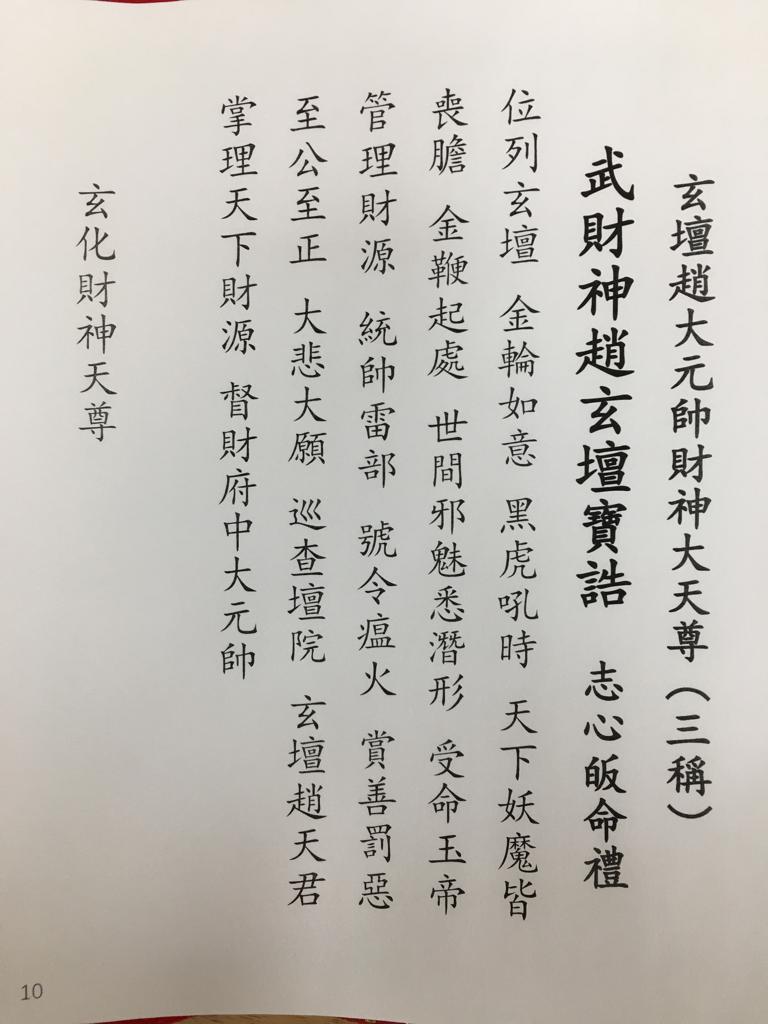 玄壇趙大元帥財神大天尊（三稱）
武財神趙玄壇寶誥　志心皈命禮
位列玄壇　金輪如意　黑虎吼時　天下妖魔皆
喪膽　金鞭起處　世間邪魅悉潛形　受命玉帝
管理財源　統帥雷部　號令瘟火　賞善罰惡
至公至正　大悲大願　巡查壇院　玄壇趙天君
掌理天下財源　督財府中大元帥
玄化財神天尊
10